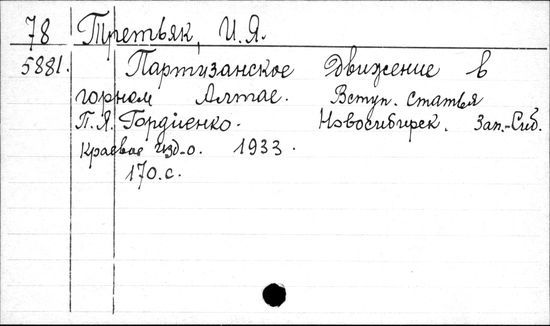 78 Третьяк, И.Я.
5881. Партизанское движение в
горном Алтае. Вступ. статья
П.Я. Гордиенко. Новосибирск. Зап.-Сиб.
Краевое изд-о. 1933.
170.с.